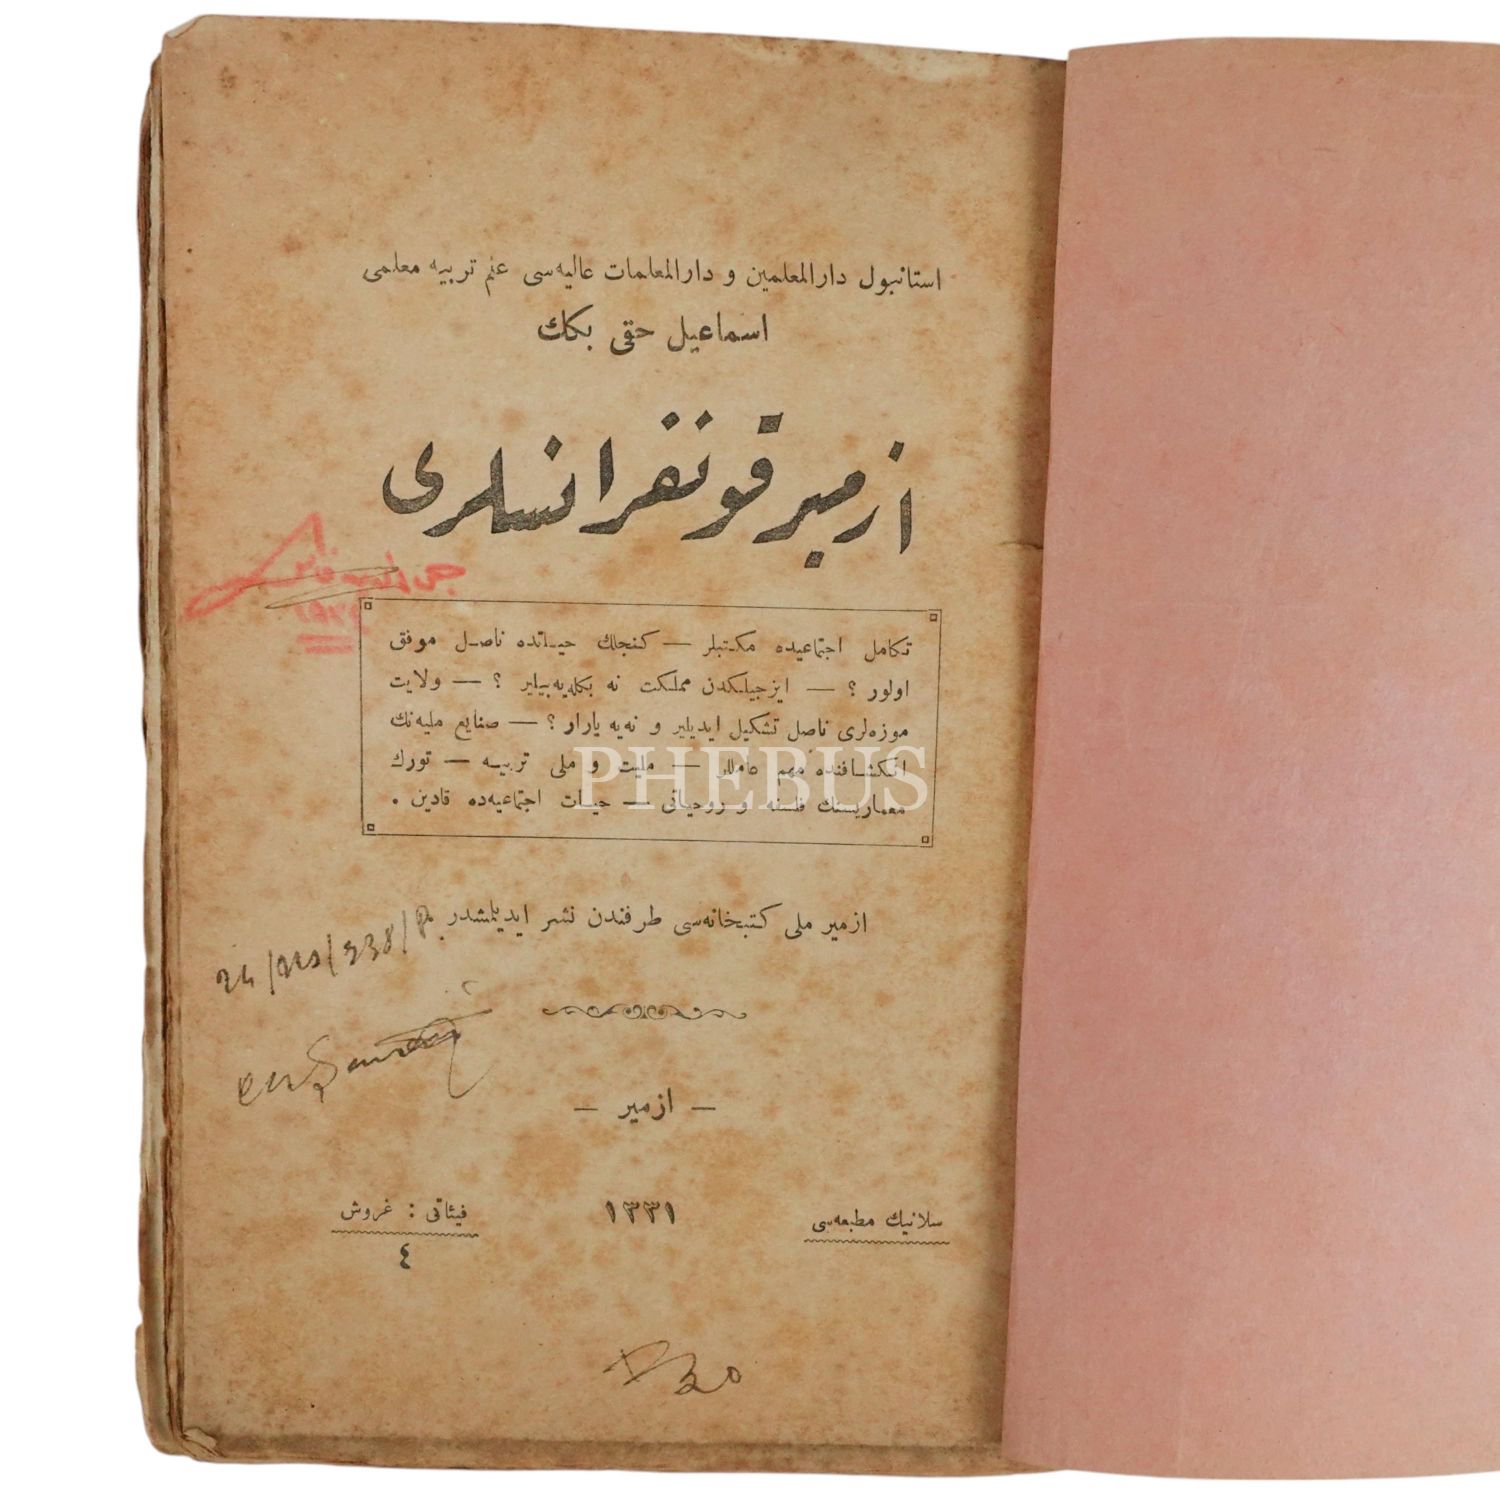 استانبول دارالمعلمين و دارالمعلمات عاليه‌سی علم تربيه معلمی
اسماعيل حقی بكك
ازمير قونفرانسلری
تكامل اجتماعيده مكتبلر — كنجلك حياتده ناصل موفق
اولور ؟ — ايزجيلكدن مملكت نه بكله‌يه‌بيلير ؟ — ولايت
موزه‌لری ناصل تشكيل ايديلير و نه‌يه يارار ؟ — صنايع مليه‌نك
انكشافنده مهم عاملر — مليت و ملی تربيه — تورك
معماريسنك فلسفه و روحياتی — حيات اجتماعيه‌ده قادين .
PHEBUS
ازمير ملی كتبخانه‌سی طرفندن نشر ايديلمشدر .
— ازمير —
سلانيك مطبعه‌سی
١٣٣١
فيئاتی : غروش
٤